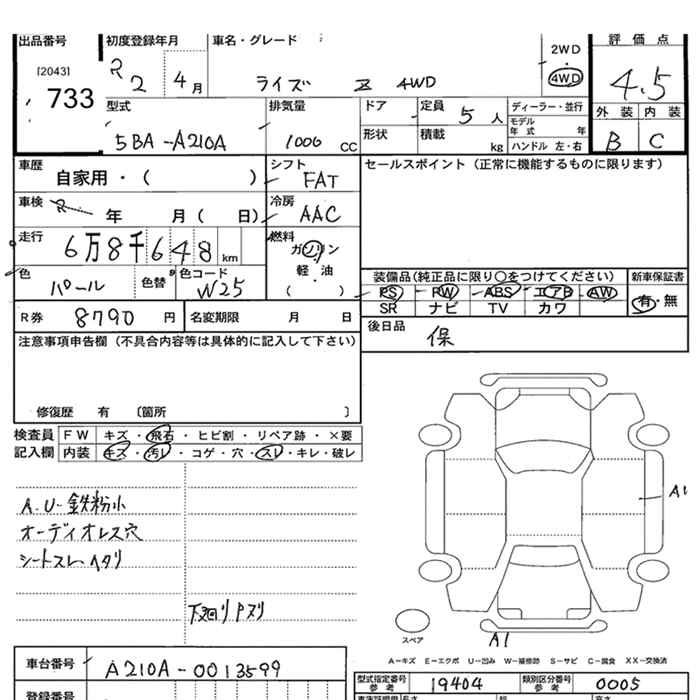 出品番号 初度登録年月 車名・グレード 評価点
[2043] R 2WD
733 2 4月 ライズ Z 4WD 4WD 4.5
型式 排気量 ドア 定員 5人 ディーラー・並行 外装 内装
モデル年式 年
5BA-A210A 1000 CC 形状 積載 kg ハンドル 左・右 B C
車歴 シフト セールスポイント(正常に機能するものに限ります)
自家用・( ) FAT
車検 R 年 月( 日) 冷房 AAC
走行 6万8千648km 燃料 ガソリン
軽・油
( )
色 パール 色替 色コード W25
装備品(純正品に限り○をつけてください) 新車保証書
PS PW ABS エアB AW 有・無
SR ナビ TV カワ
R券 8790 円 名変期限 月 日 後日品 保
注意事項申告欄(不具合内容等は具体的に記入して下さい)
修復歴 有 〔箇所 〕
検査員 FW キズ・飛石・ヒビ割・リペア跡・×要
記入欄 内装 キズ・汚レ・コゲ・穴・スレ・キレ・破レ
A1
A.U-鉄粉小
オーディオレス穴
シートスレ・ヘタリ
下廻りPスリ
スペア
A1
A-キズ E-エクボ U-凹み W-補修跡 S-サビ C-腐食 XX-交換済
車台番号 A210A-0013599 型式指定番号 参考 19404 類別区分番号 参考 0005
登録番号 長さ 幅 高さ